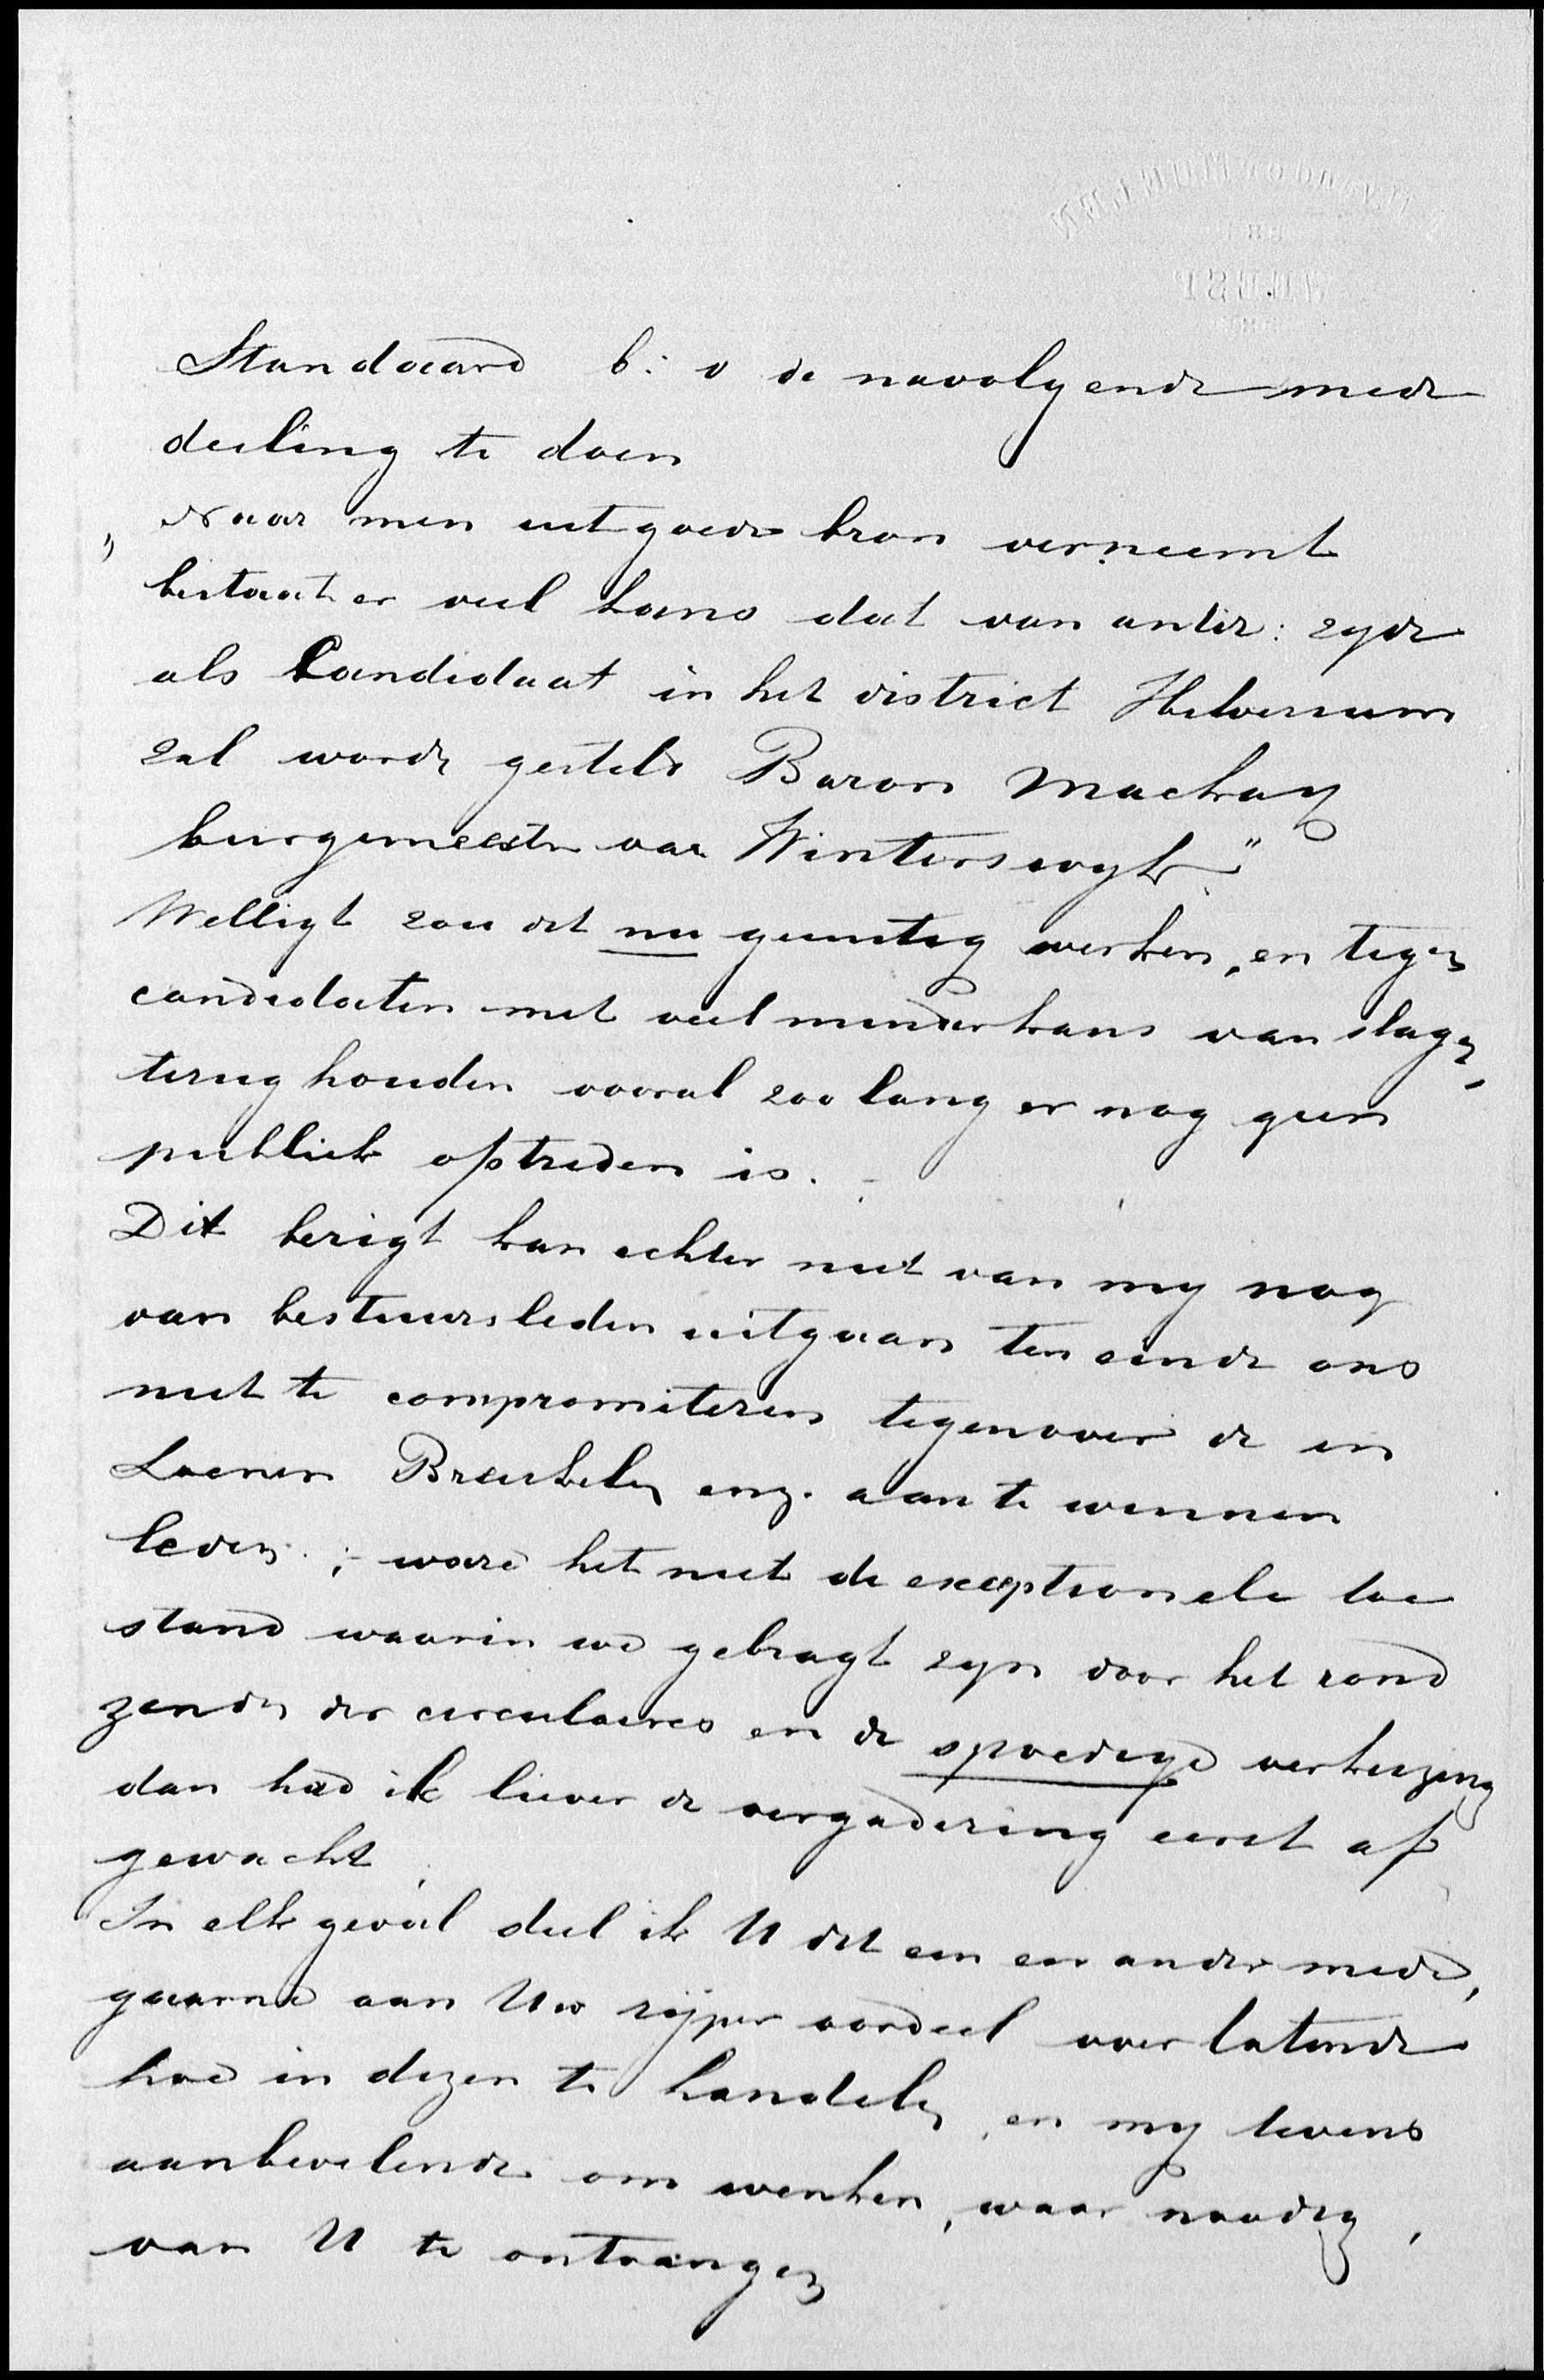 Standaard b: v de navolgende mede
deeling te doen
„ Naar men uit goede bron verneemt
bestaat er veel kans dat van antir: zyde
als Candidaat in het district Hilversum
zal worde gesteld Baron Mackay
burgemeester van Winterswyk."
Welligt zou dit nu gunstig werken, en tegen
candidaten met veel minder kans van slagen,
terug houden vooral zoo lang er nog geen
publiek optreden is. -
Dit berigt kan echter niet van my nog
van bestuursleden uitgaan ten einde ons
niet te compromiteren tegenover de in
Loenen Breukelen enz. aan te winnen
leden; - ware het niet de exceptionele toe
stand waarin we gebragt zyn door het rond
zenden der circulaires en de spoedige verkiezing
dan had ik liever de vergadering eerst af
gewacht.
In elk geval deel ik U dit een en ander mede,
gaarne aan Uw rijper oordeel over latende
hoe in dezen te handelen, en my tevens
aanbevelende om wenken, waar noodig,
van U te ontvangen